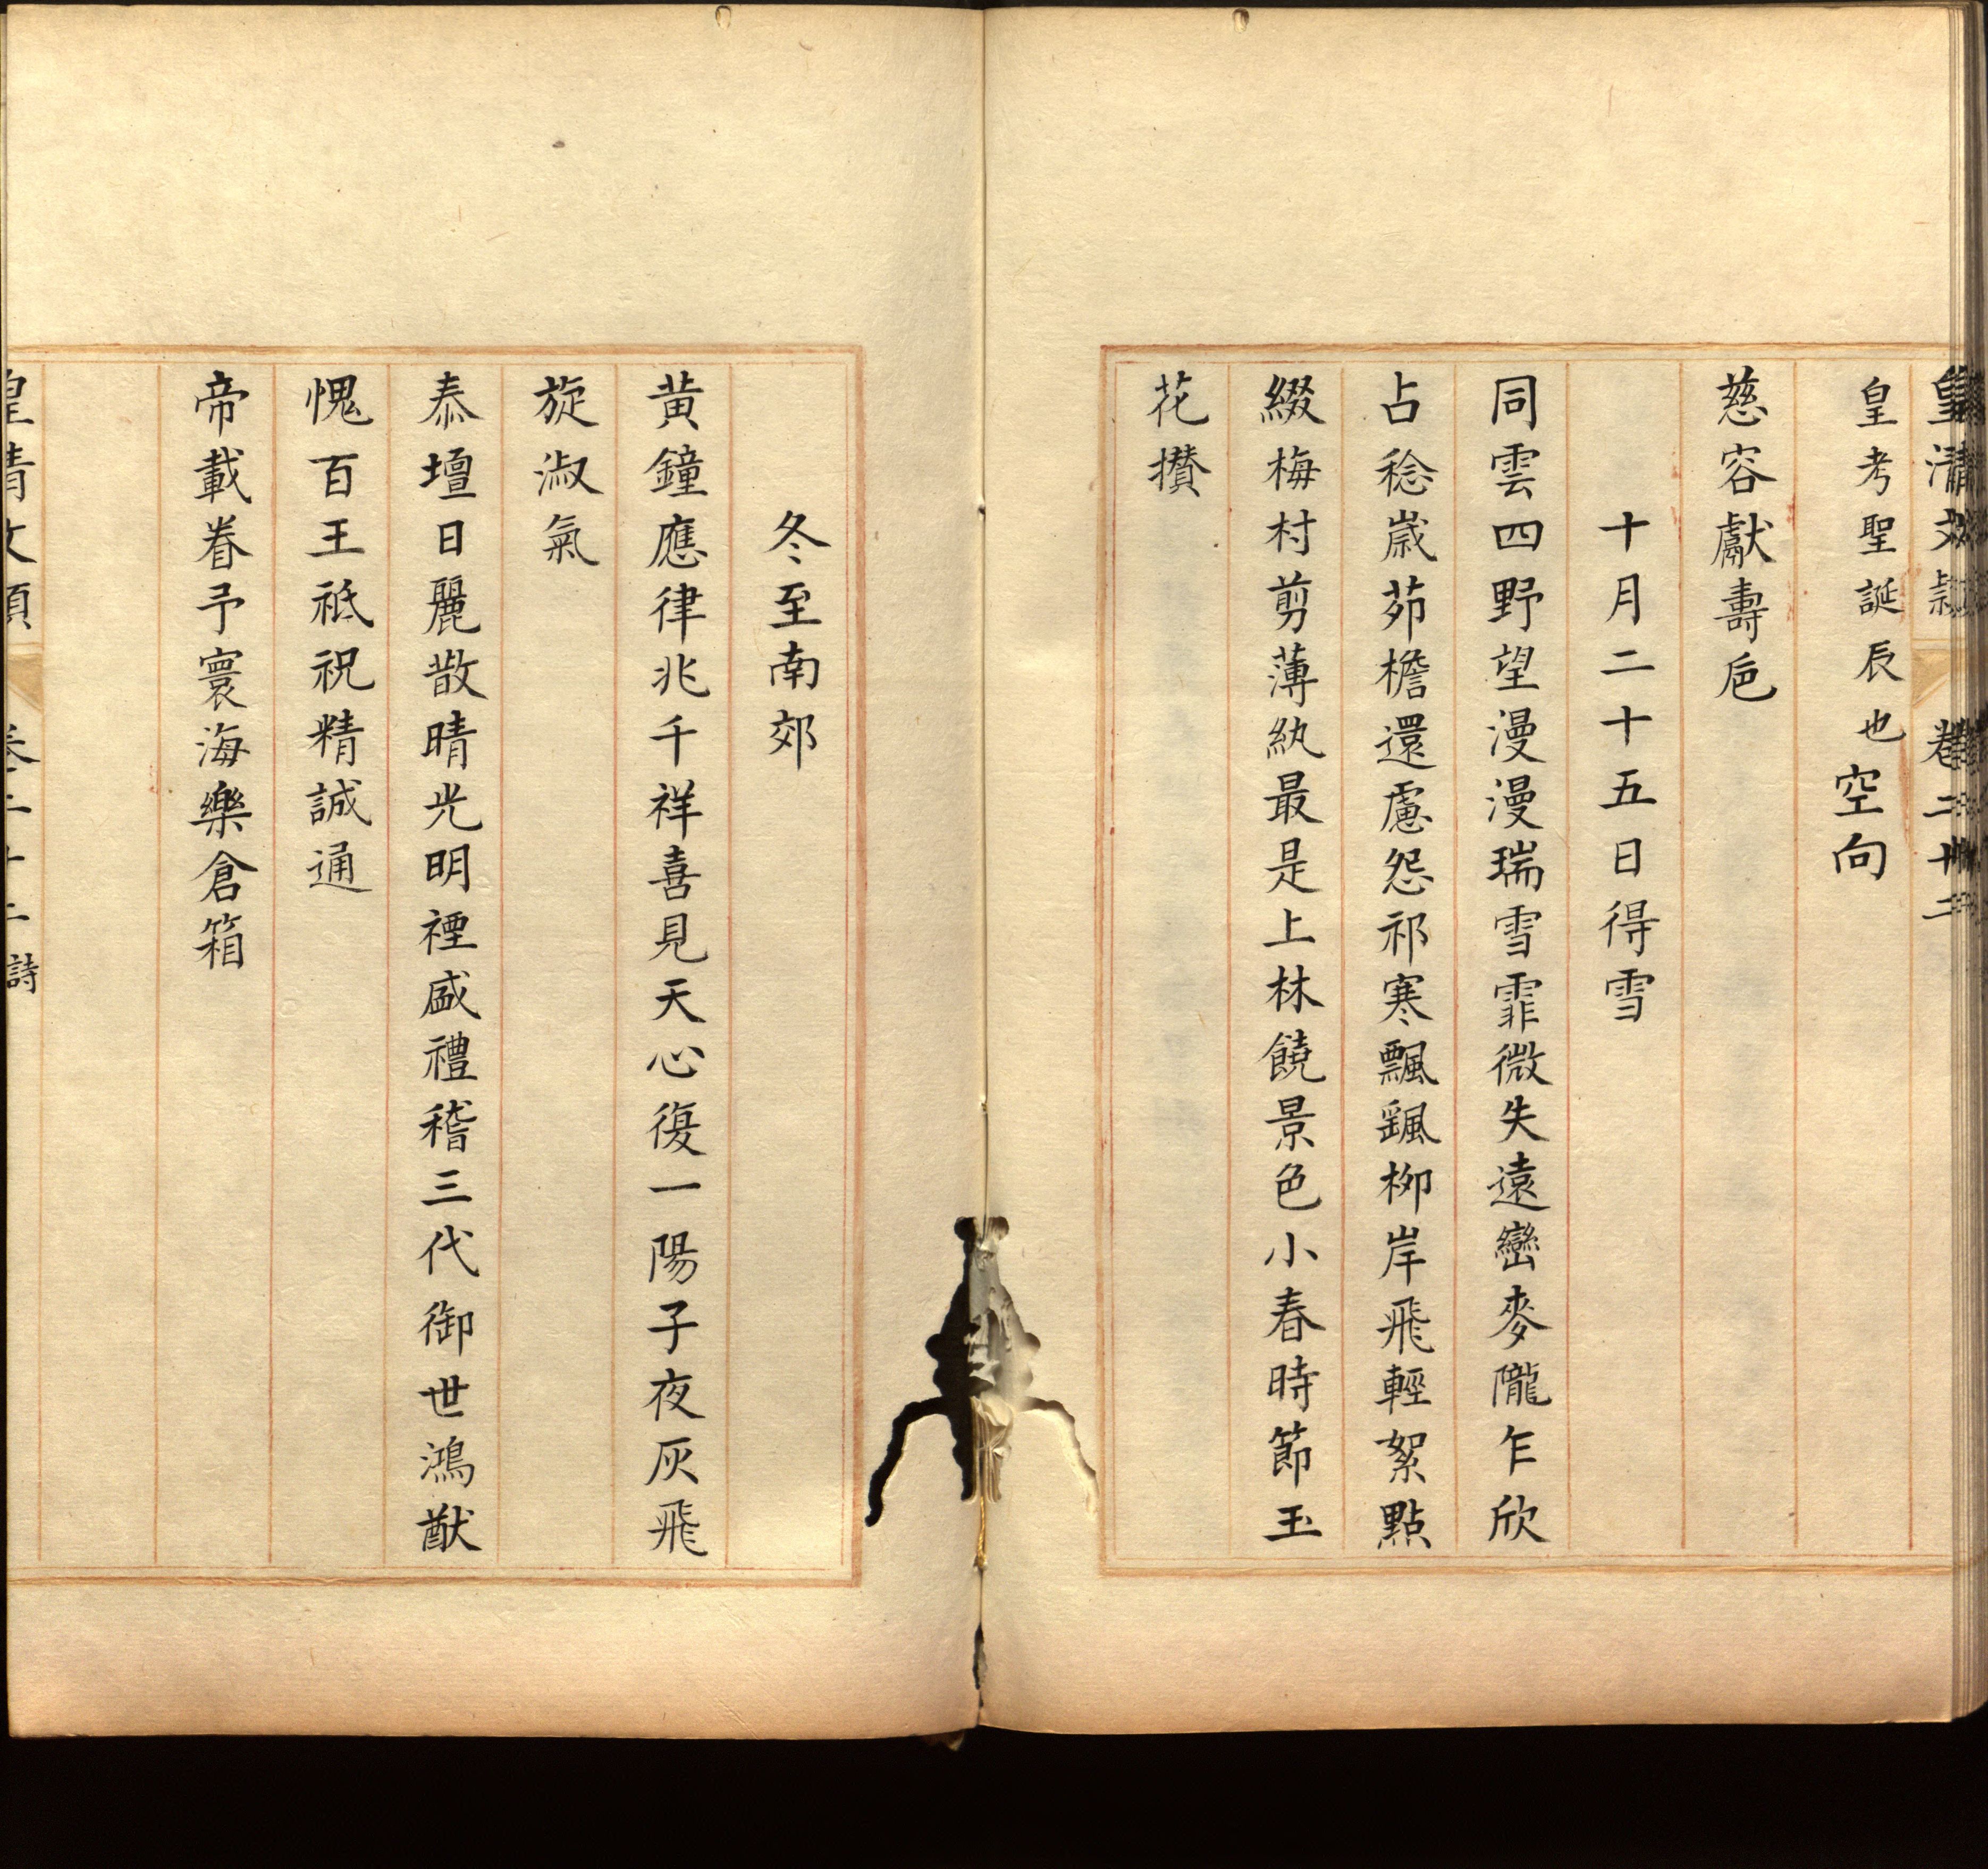 皇清文穎 卷二十二
皇考聖誕辰也空向
慈容獻壽卮
十月二十五日得雪
同雲四野望漫漫瑞雪霏微失遠巒麥隴乍欣
占稔歲茆檐還慮怨祁寒飄颻柳岸飛輕絮點
綴梅村剪薄紈最是上林饒景色小春時節玉
花攢
冬至南郊
黄鐘應律兆千祥喜見天心復一陽子夜灰飛
旋淑氣
泰壇日麗散晴光明禋盛禮稽三代御世鴻猷
愧百王祗祝精誠通
帝載眷予寰海樂倉箱
皇清文穎 卷二十二 詩